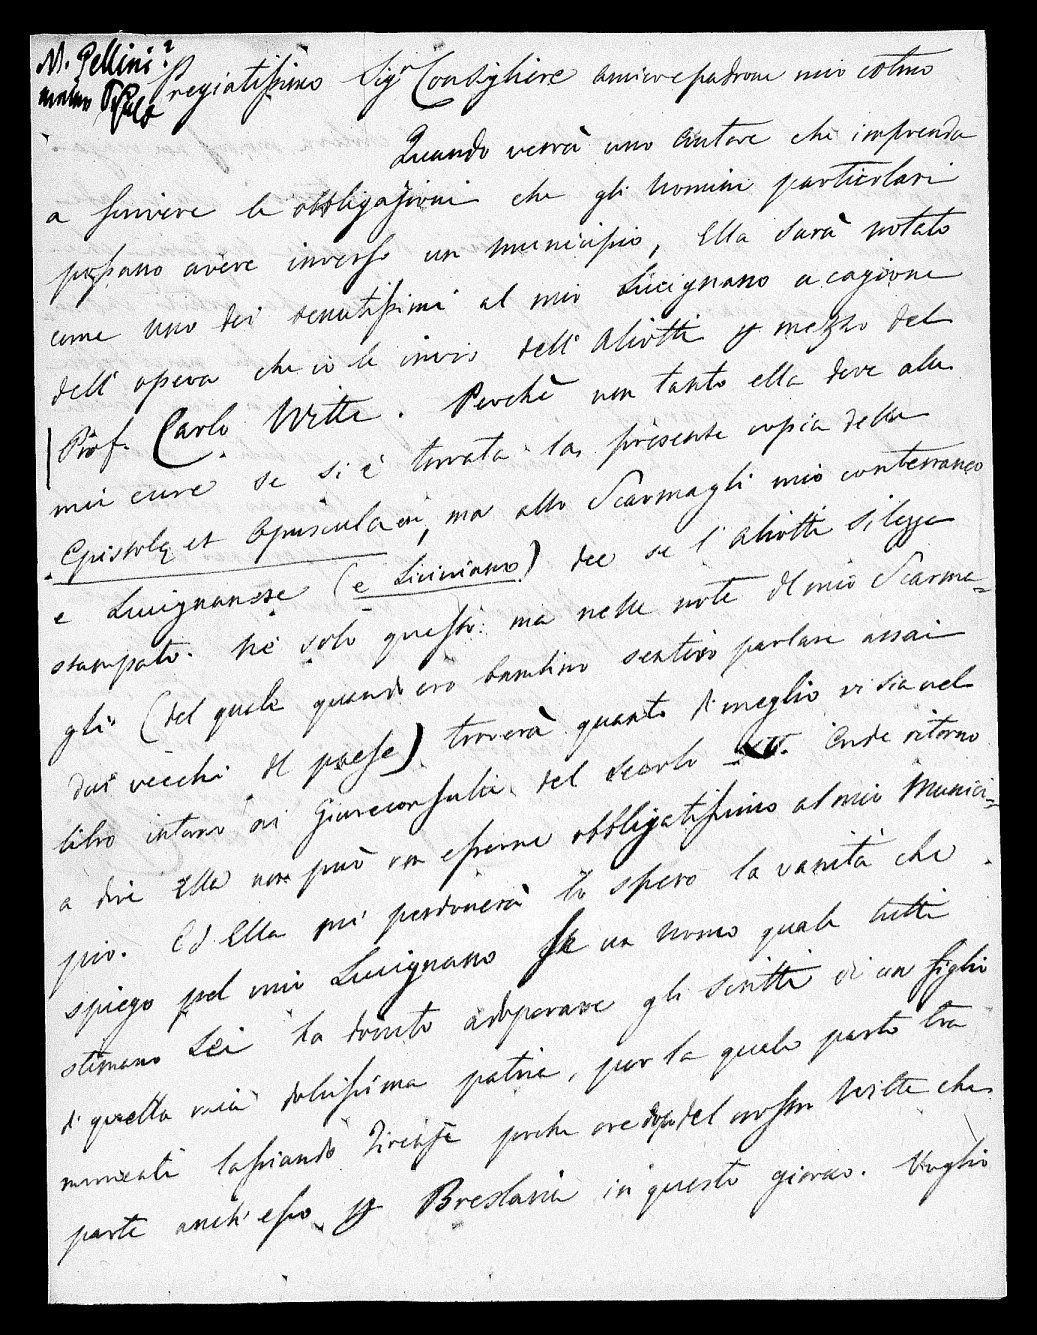 M. Pellini?
Pregiatissimo Sigr Consigliere amico e padrone mio colmo
Quando verrà uno autore che imprenda
a scrivere le obbligazioni che gli uomini particolari
possano avere inverso un municipio, Ella sarà notato
come uno dei tenutissimi al mio Lucignano a cagione
dell' opera che io le invio dell' Aliotti p mezzo del
Prof. Carlo Witte. Perchè non tanto ella deve alle
mie cure se si è trovata la presente copia delle
Epistolę et Opuscula ei, ma allo Scarmagli mio conterraneo
e Lucignanese (e Liciniano) dee se l' Aliotti si legge
stampato. Nè solo questo: ma nelle note del mio Scarma=
gli (del quale quando ero bambino sentivo parlare assai
dai vecchi del paese) troverà quanto di meglio vi sia nel
libro intorno ai Giureconsulti del secolo XV. Onde ritorno
a dire Ella non può non esserne obbligatissimo al mio Munici=
pio. Ed Ella mi perdonerà lo spero la vanità che
spiego pel mio Lucignano se un uomo quale tutti
stimano Lei ha dovuto adoperare gli scritti di un figlio
di quella mia dolcissima patria, per la quale parto tra
momenti lasciando Firenze poche ore dopo del nostro Witte che
parte anch' esso p Breslavia in questo giorno. Voglio